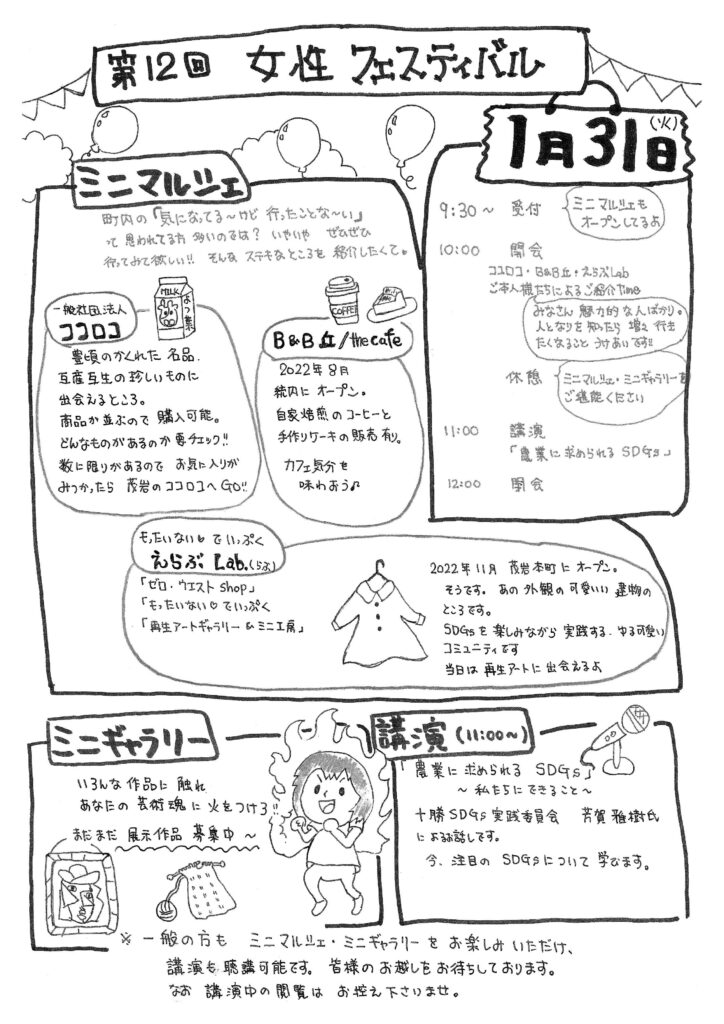 第12回 女性フェスティバル
1月31日(火)
ミニマルシェ
町内の「気になってる〜けど 行ったことな〜い」
って 思われてる方 多いのでは？ いやいや ぜひぜひ
行ってみて欲しい!! そんな ステキなところを 紹介したくて。
一般社団法人
ココロコ
MILK
よつ葉
豊頃のかくれた 名品、
互産互生の珍しいものに
出会えるところ。
商品が並ぶので 購入可能。
どんなものがあるのか要チェック!!
数に限りがあるので お気に入りが
みつかったら 茂岩のココロコへ GO!!
COFFEE
B&B丘/the cafe
2022年8月
統内にオープン。
自家焙煎のコーヒーと
手作りケーキの販売有。
カフェ気分を
味わおう♪
9:30〜 受付
ミニマルシェも
オープンしてるよ
10:00 開会
ココロコ・B&B丘・えらぶLab
ご本人様たちによるご紹介Time
みなさん 魅力的な人ばかり。
人となりを知ったら 増々 行き
たくなること うけあいです!!
休憩
ミニマルシェ・ミニギャラリーを
ご堪能ください
11:00 講演
「農業に求められる SDGs」
12:00 閉会
もったいない♡でいっぷく
えらぶ Lab.(らぶ)
「ゼロ・ウエスト shop」
「もったいない♡でいっぷく」
「再生アートギャラリー & ミニ工房」
2022年11月 茂岩本町に オープン。
そうです。あの 外観の 可愛いい 建物の
ところです。
SDGsを 楽しみながら 実践する、ゆる可愛い
コミュニティです
当日は 再生アートに 出会えるよ
ミニギャラリー
いろんな 作品に 触れ
あなたの 芸術魂に 火をつけろ!!
まだまだ 展示作品 募集中 〜
講演 (11:00〜)
「農業に求められる SDGs」
〜 私たちにできること〜
十勝SDGs実践委員会 芳賀 雅樹氏
によるお話しです。
今、注目の SDGsについて 学びます。
※ 一般の方も ミニマルシェ・ミニギャラリーを お楽しみいただけ、
講演も聴講可能です。皆様のお越しをお待ちしております。
なお 講演中の閲覧は お控え下さいませ。